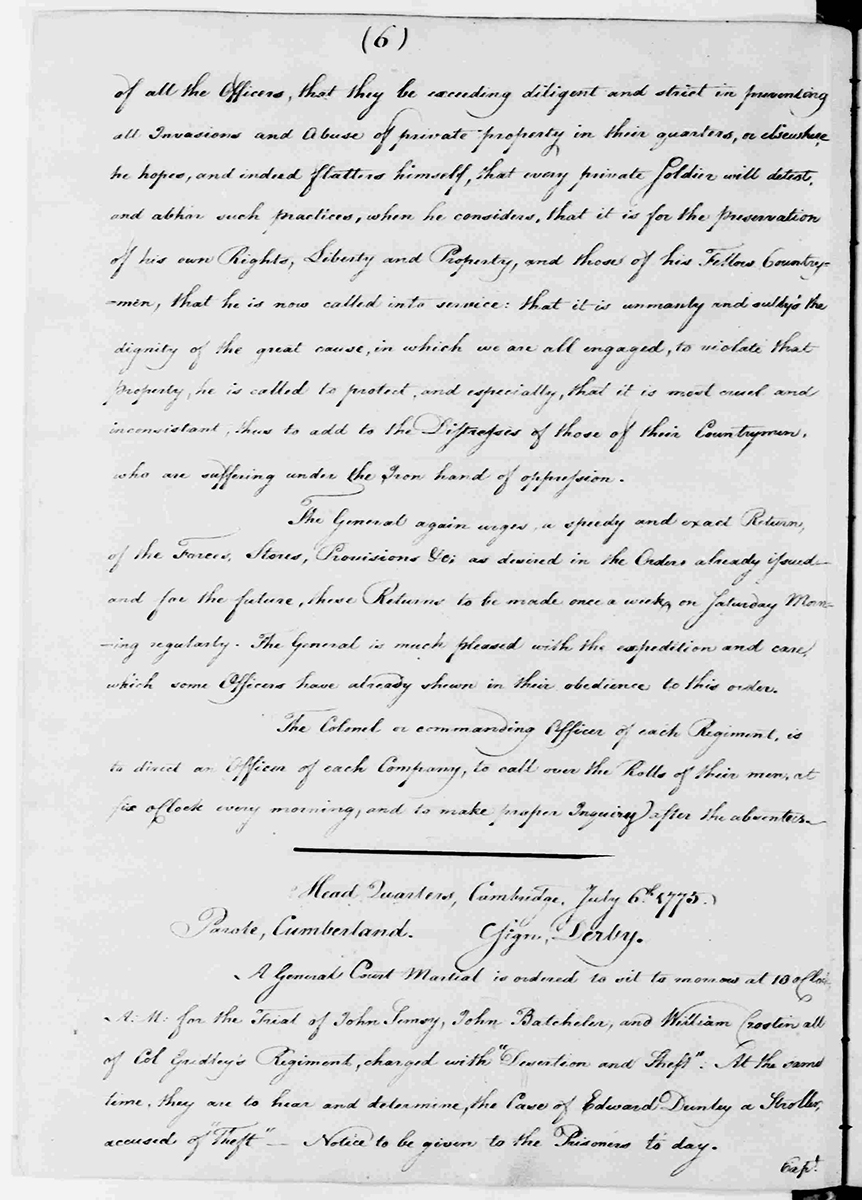 (6)
of all the Officers, that they be exceeding diligent and strict in preventing
all Invasions and Abuse of private property in their quarters, or elsewhere
he hopes, and indeed flatters himself, that every private Soldier will detest,
and abhor such practices, when he considers, that it is for the preservation
of his own Rights, Liberty and Property, and those of his Fellow Country-
-men, that he is now called into service: that it is unmanly and sully's the
dignity of the great cause, in which we are all engaged, to violate that
property, he is called to protect, and especially, that it is most cruel and
inconsistant, thus to add to the Distresses of those of their Countrymen,
who are suffering under the Iron hand of oppression.
The General again urges, a speedy and exact Return,
of the Forces, Stores, Provisions &c; as desired in the Orders already issued—
and for the future, these Returns to be made once a week, on Saturday Morn-
-ing regularly. The General is much pleased with the expedition and care,
which some Officers have already shewn in their obedience to this order.
The Colonel or commanding Officer of each Regiment, is
to direct an Officer of each Company, to call over the Rolls of their men, at
six o,Clock every morning, and to make proper Inquiry after the absentees.
Head Quarters, Cambridge, July 6th. 1775.
Parole, Cumberland. Csign, Derby.
A General Court Martial is ordered to sit to morrow at 10 oClock
A:M: for the Trial of John Batcheler, and William Crostin all
of Col Gridley's Regiment, charged with "Desertion and Theft": At the same
time, they are to hear and determine, the Case of Edward a Stroller,
accused of "Theft"— Notice to be given to the Prisoners to day.
Capt.